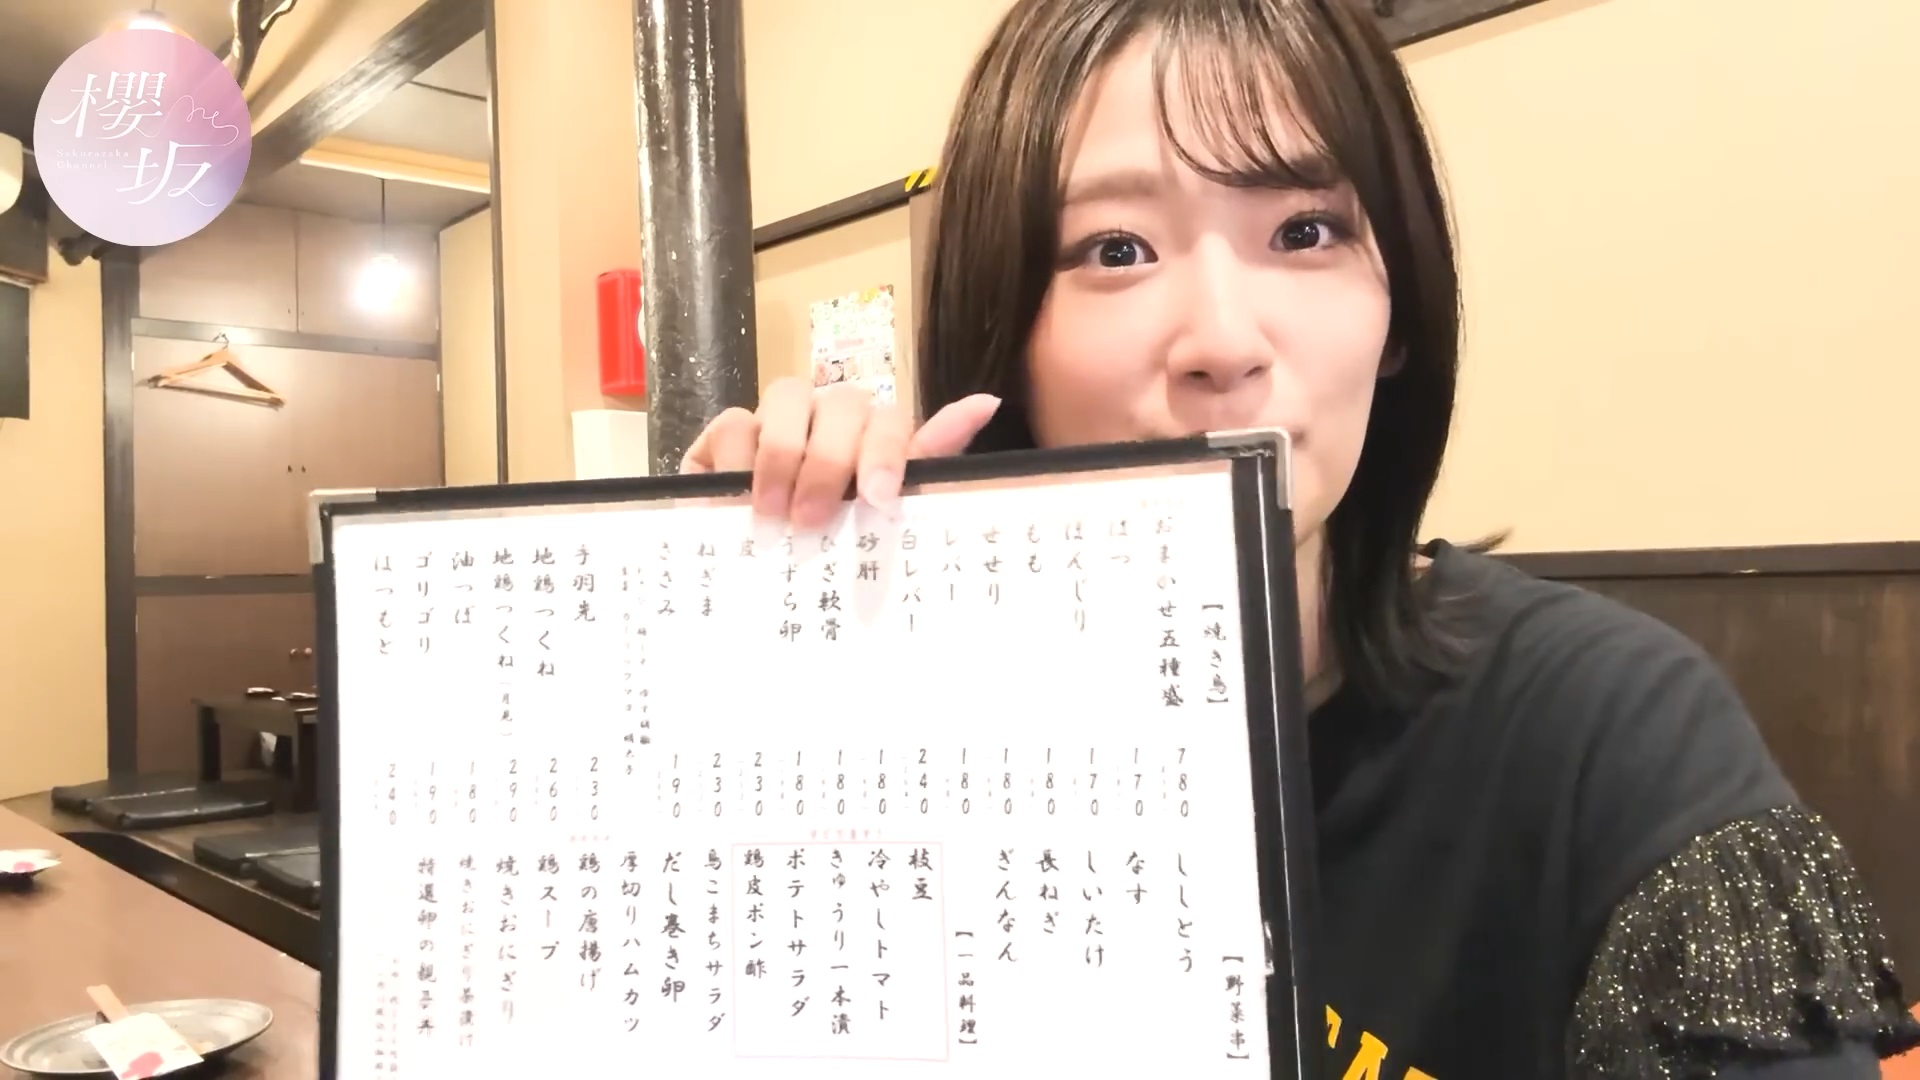 櫻坂
Sakurazaka
Channel
【焼き鳥】
おまかせ五種盛 780
はつ 170
ぼんじり 170
もも 180
せせり 180
レバー 180
白レバー 240
砂肝 180
ひざ軟骨 180
うずら卵 180
皮 230
ねぎま 230
ささみ 190
手羽先 230
地鶏つくね 260
地鶏つくね(月見) 290
油つぼ 180
ゴリゴリ 190
はつもと 240
【野菜串】
ししとう
なす
しいたけ
長ねぎ
ぎんなん
【一品料理】
枝豆
冷やしトマト
きゅうり一本漬
ポテトサラダ
鶏皮ポン酢
鳥こまちサラダ
だし巻き卵
厚切りハムカツ
鶏の唐揚げ
鶏スープ
焼きおにぎり
焼きおにぎり茶漬け
特選卵の親子丼